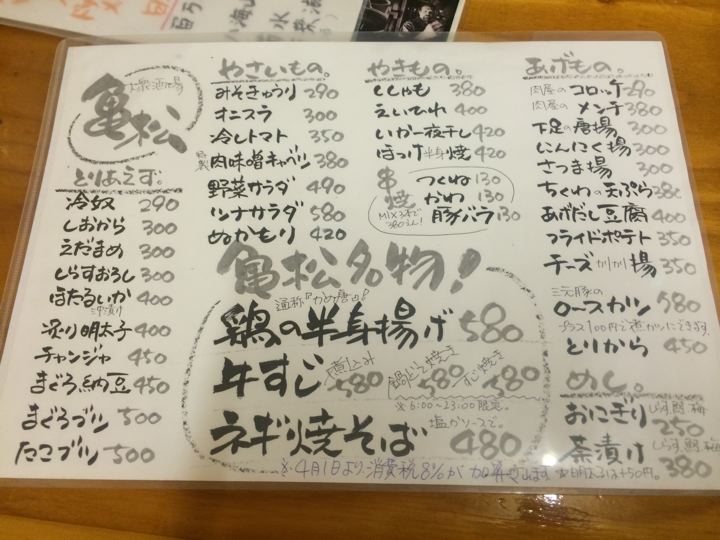 大衆酒場
亀松
とりあえず。
冷奴 290
しおから 300
えだまめ 300
しらすおろし 300
ほたるいか 400
沖漬け
炙り明太子 400
チャンジャ 450
まぐろ納豆 450
まぐろブツ 500
たこブツ 500
やさいもの。
みそきゅうり 290
オニスラ 300
冷しトマト 350
肉味噌キャベツ 380
野菜サラダ 490
ツナサラダ 580
ぬかもり 420
やきもの。
ししゃも 380
えいひれ 400
いか一夜干し 420
ほっけ半身焼 420
串焼
つくね 130
かわ 130
豚バラ 130
MIX3本で
380えん!
あげもの。
肉屋のコロッケ 290
肉屋のメンチ 380
下足の唐揚 300
にんにく揚 300
さつま揚 300
ちくわの天ぷら 380
あげだし豆腐 400
フライドポテト 350
チーズカリカリ揚 350
三元豚の
ロースカツ 580
プラス100円で煮カツにできます。
とりから 450
めし。
おにぎり しらす 鮭 梅 250
茶漬け しらす 鮭 梅 380
亀松名物!
通称『かめ唐』!
鶏の半身揚げ 580
牛すじ 煮込み 580 鍋どて焼き 580 すじ焼き 580
※6:00~23:00限定。
ネギ焼そば 塩かソースで。 480
※4月1日より消費税8%が加算されます